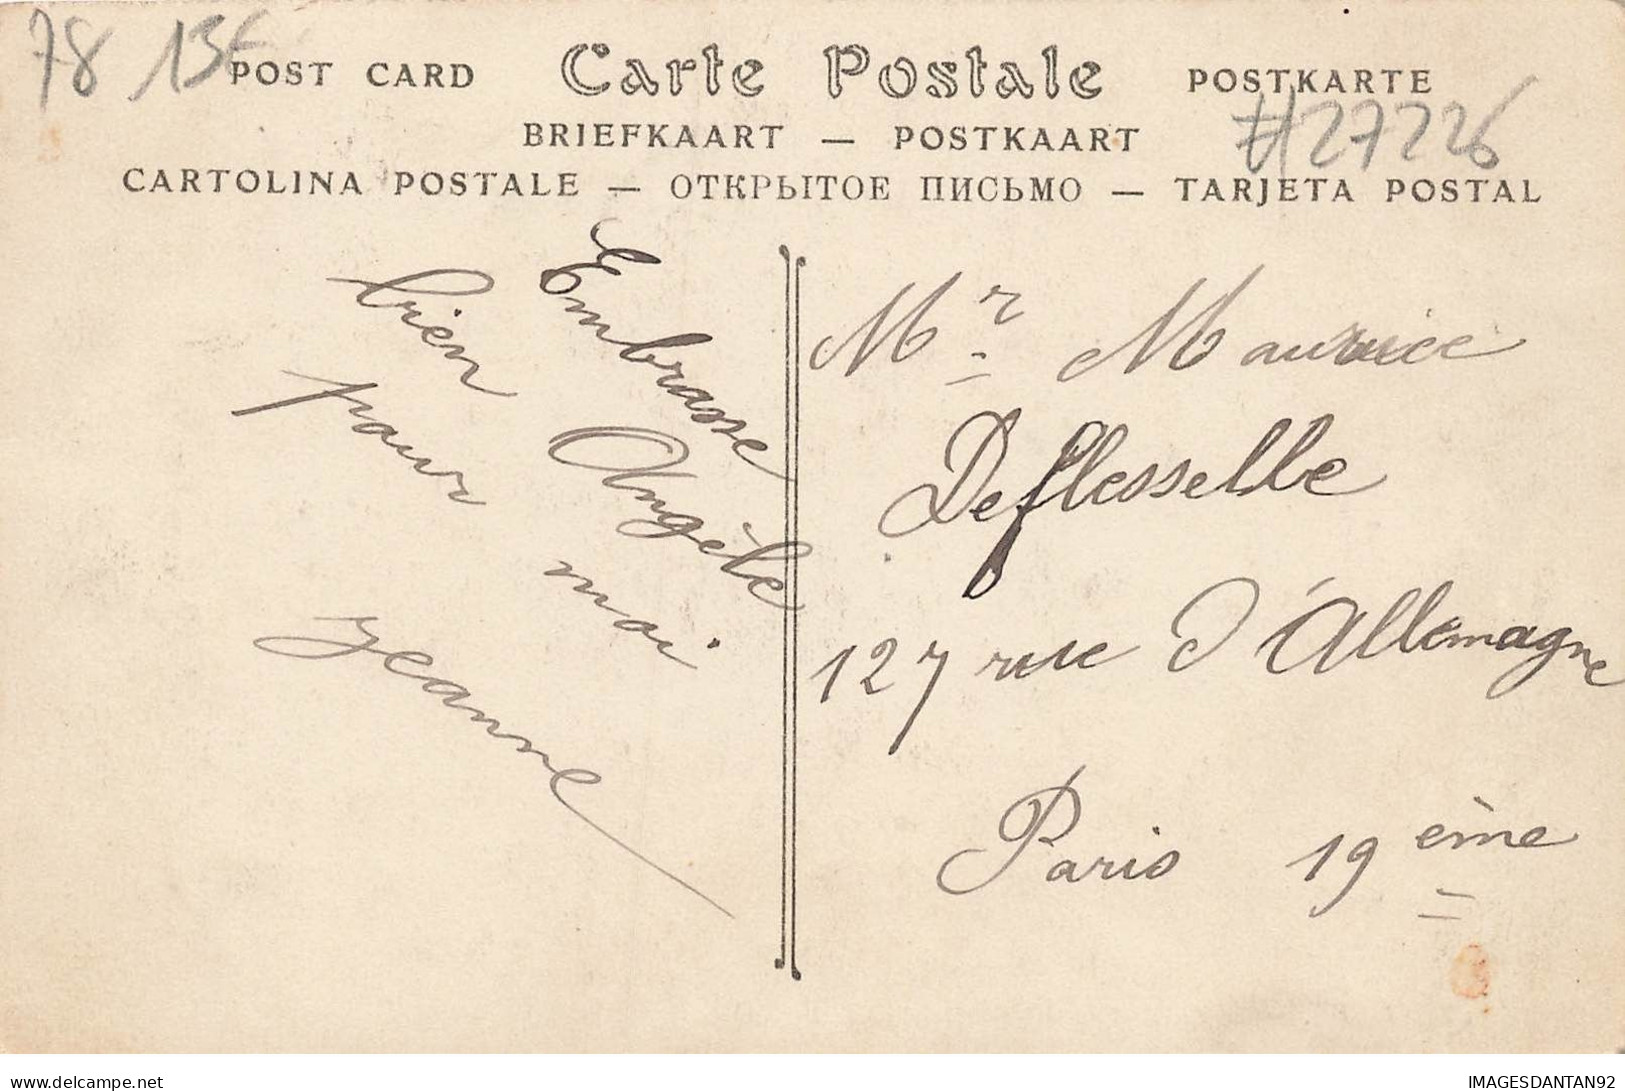 78 13€
POST CARD Carte Postale POSTKARTE
#27226
BRIEFKAART — POSTKAART
CARTOLINA POSTALE — ОТКРЫТОЕ ПИСЬМО — TARJETA POSTAL
Embrasse
bien Angèle
pour moi
Jeanne
Mr Maurice
Deflesselle
127 rue d'Allemagne
Paris 19ème
www.delcampe.net IMAGESDANTAN92